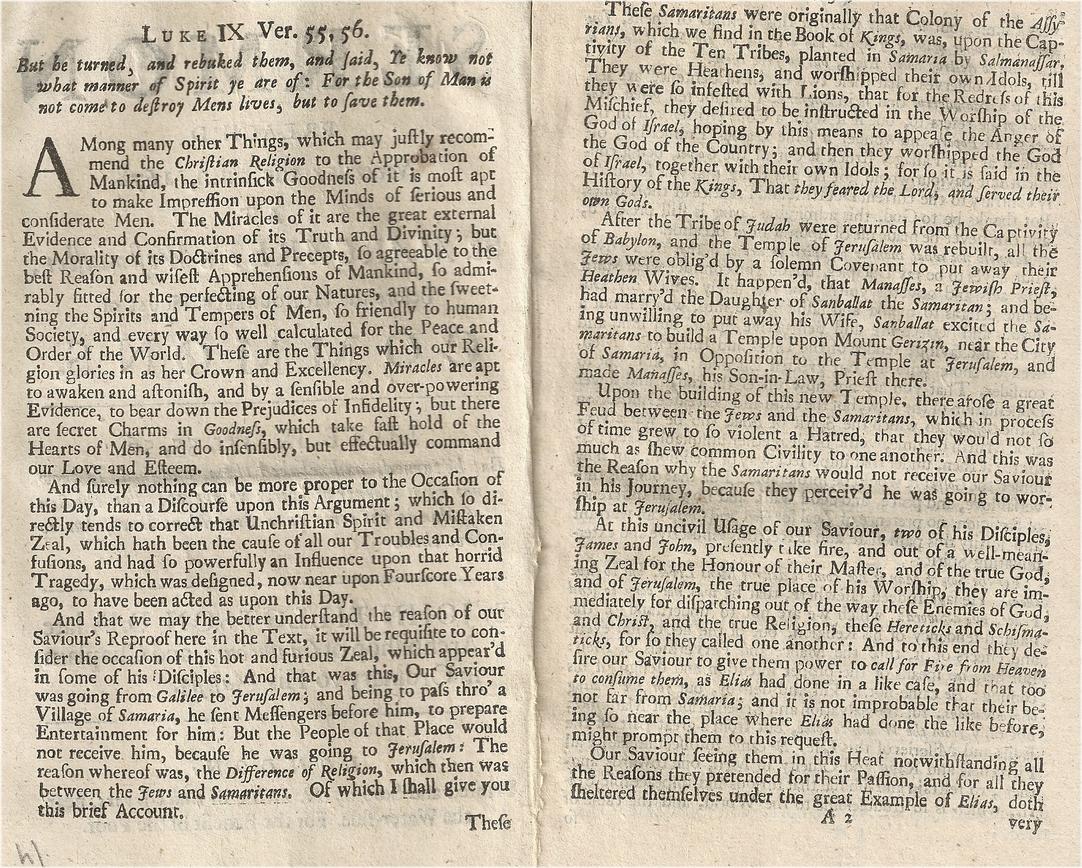 LUKE IX Ver. 55, 56.
But he turned, and rebuked them, and ſaid, Ye know not
what manner of Spirit ye are of: For the Son of Man is
not come to deſtroy Mens lives, but to ſave them.
AMong many other Things, which may juſtly recom-
mend the Chriſtian Religion to the Approbation of
Mankind, the intrinſick Goodneſs of it is moſt apt
to make Impreſſion upon the Minds of ſerious and
conſiderate Men. The Miracles of it are the great external
Evidence and Confirmation of its Truth and Divinity; but
the Morality of its Doctrines and Precepts, ſo agreeable to the
beſt Reaſon and wiſeſt Apprehenſions of Mankind, ſo admi-
rably fitted for the perfecting of our Natures, and the ſweet-
ning the Spirits and Tempers of Men, ſo friendly to human
Society, and every way ſo well calculated for the Peace and
Order of the World. Theſe are the Things which our Reli-
gion glories in as her Crown and Excellency. Miracles are apt
to awaken and aſtoniſh, and by a ſenſible and over-powering
Evidence, to bear down the Prejudices of Infidelity; but there
are ſecret Charms in Goodneſs, which take faſt hold of the
Hearts of Men, and do inſenſibly, but effectually command
our Love and Eſteem.
And ſurely nothing can be more proper to the Occaſion of
this Day, than a Diſcourſe upon this Argument; which ſo di-
rectly tends to correct that Unchriſtian Spirit and Miſtaken
Zeal, which hath been the cauſe of all our Troubles and Con-
fuſions, and had ſo powerfully an Influence upon that horrid
Tragedy, which was deſigned, now near upon Fourſcore Years
ago, to have been acted as upon this Day.
And that we may the better underſtand the reaſon of our
Saviour's Reproof here in the Text, it will be requiſite to con-
ſider the occaſion of this hot and furious Zeal, which appear'd
in ſome of his Diſciples: And that was this, Our Saviour
was going from Galilee to Jeruſalem; and being to paſs thro' a
Village of Samaria, he ſent Meſſengers before him, to prepare
Entertainment for him: But the People of that Place would
not receive him, becauſe he was going to Jeruſalem: The
reaſon whereof was, the Difference of Religion, which then was
between the Jews and Samaritans. Of which I ſhall give you
this brief Account.
Theſe
Theſe Samaritans were originally that Colony of the Aſſy-
rians, which we find in the Book of Kings, was, upon the Cap-
tivity of the Ten Tribes, planted in Samaria by Salmanaſſar,
They were Heathens, and worſhipped their own Idols, till
they were ſo infeſted with Lions, that for the Redreſs of this
Miſchief, they deſired to be inſtructed in the Worſhip of the
God of Iſrael, hoping by this means to appeaſe the Anger of
the God of the Country; and then they worſhipped the God
of Iſrael, together with their own Idols; for ſo it is ſaid in the
Hiſtory of the Kings, That they feared the Lord, and ſerved their
own Gods.
After the Tribe of Judah were returned from the Captivity
of Babylon, and the Temple of Jeruſalem was rebuilt, all the
Jews were oblig'd by a ſolemn Covenant to put away their
Heathen Wives. It happen'd, that Manaſſes, a Jewiſh Prieſt,
had marry'd the Daughter of Sanballat the Samaritan; and be-
ing unwilling to put away his Wife, Sanballat excited the Sa-
maritans to build a Temple upon Mount Gerizin, near the City
of Samaria, in Oppoſition to the Temple at Jeruſalem, and
made Manaſſes, his Son-in-Law, Prieſt there.
Upon the building of this new Temple, there aroſe a great
Feud between the Jews and the Samaritans, which in proceſs
of time grew to ſo violent a Hatred, that they wou'd not ſo
much as ſhew common Civility to one another. And this was
the Reaſon why the Samaritans would not receive our Saviour
in his Journey, becauſe they perceiv'd he was going to wor-
ſhip at Jeruſalem.
At this uncivil Uſage of our Saviour, two of his Diſciples,
James and John, preſently take fire, and out of a well-mean-
ing Zeal for the Honour of their Maſter, and of the true God,
and of Jeruſalem, the true place of his Worſhip, they are im-
mediately for diſpatching out of the way theſe Enemies of God,
and Chriſt, and the true Religion, theſe Hereticks and Schiſma-
ticks, for ſo they called one another: And to this end they de-
ſire our Saviour to give them power to call for Fire from Heaven
to conſume them, as Elias had done in a like caſe, and that too
not far from Samaria; and it is not improbable that their be-
ing ſo near the place where Elias had done the like before,
might prompt them to this requeſt.
Our Saviour ſeeing them in this Heat notwithſtanding all
the Reaſons they pretended for their Paſſion, and for all they
ſheltered themſelves under the great Example of Elias, doth
A 2
very